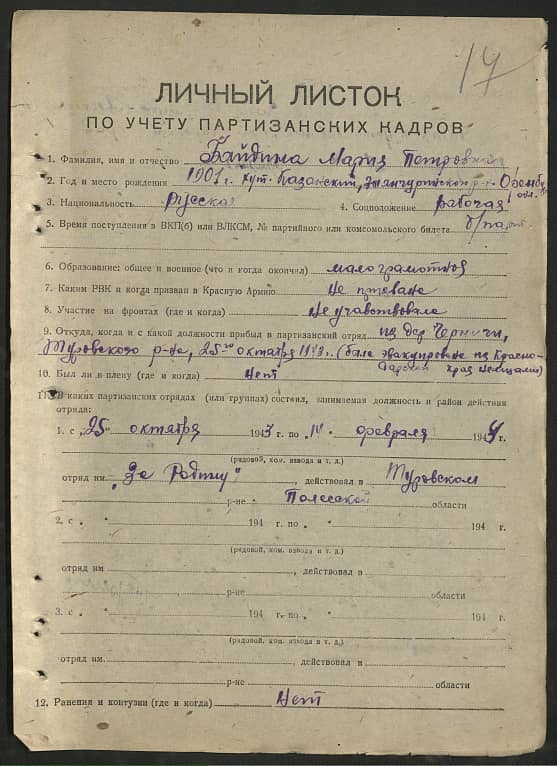 17
ЛИЧНЫЙ ЛИСТОК
ПО УЧЕТУ ПАРТИЗАНСКИХ КАДРОВ
1. Фамилия, имя и отчество Байдина Мария Петровна
2. Год и место рождения 1901 г. хут. Казанский, Зианчуринского р-на Оренб. обл.
3. Национальность русская 4. Соцположение рабочая
5. Время поступления в ВКП(б) или ВЛКСМ, № партийного или комсомольского билета б/парт.
6. Образование: общее и военное (что и когда окончил) малограмотная
7. Каким РВК и когда призван в Красную Армию не призвана
8. Участие на фронтах (где и когда) Не учавствовала
9. Откуда, когда и с какой должности прибыл в партизанский отряд из дер Черничи,
Туровского р-на, 25го октября 1943 г. (была эвакуирована из Красно-
дарский край немцами)
10. Был ли в плену (где и когда) Нет
11. В каких партизанских отрядах (или группах) состоял, занимаемая должность и район действия
отряда:
1. с „25" октября 1943 г. по февраля 1944 г.
(рядовой, ком. взвода и т. д.)
отряд им. „За Родину", действовал в Туровском
р-не Полесской области
2. с " " 194 г. по " " 194 г.
(рядовой, ком. взвода и т. д.)
отряд им. , действовал в
р-не области
3. с " " 194 г. по " " 194 г.
(рядовой, ком. взвода и т. д.)
отряд им. , действовал в
р-не области
12. Ранения и контузии (где и когда) Нет